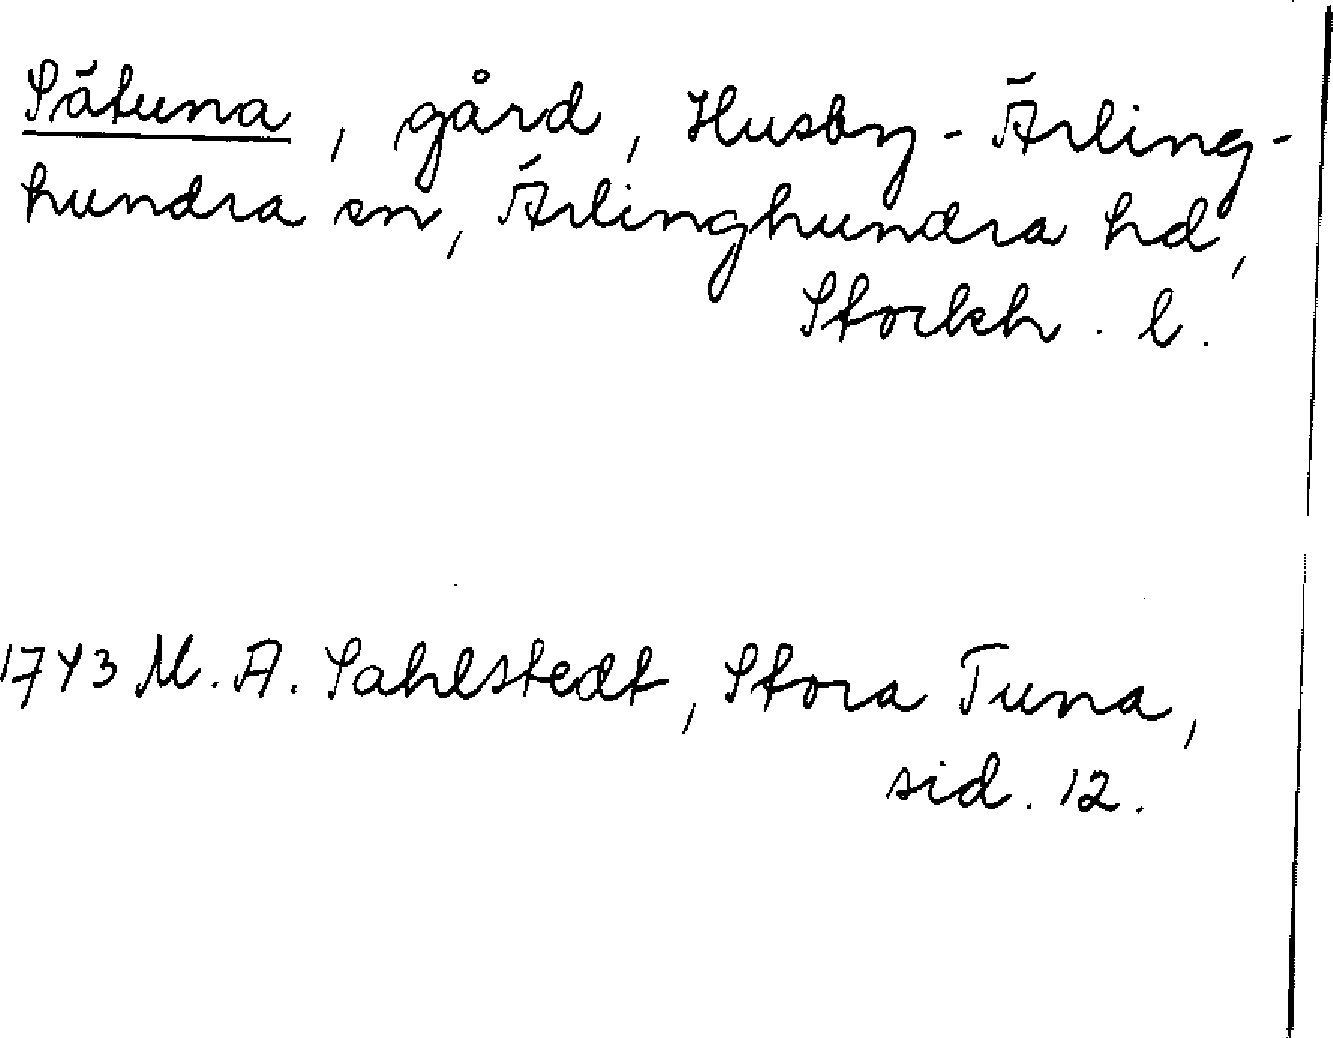 Sätuna, gård, Husby-Ärling-
hundra sn, Ärlinghundra hd,
Stockh. l.
1743 M. A. Sahlstedt, Stora Tuna,
sid. 12.